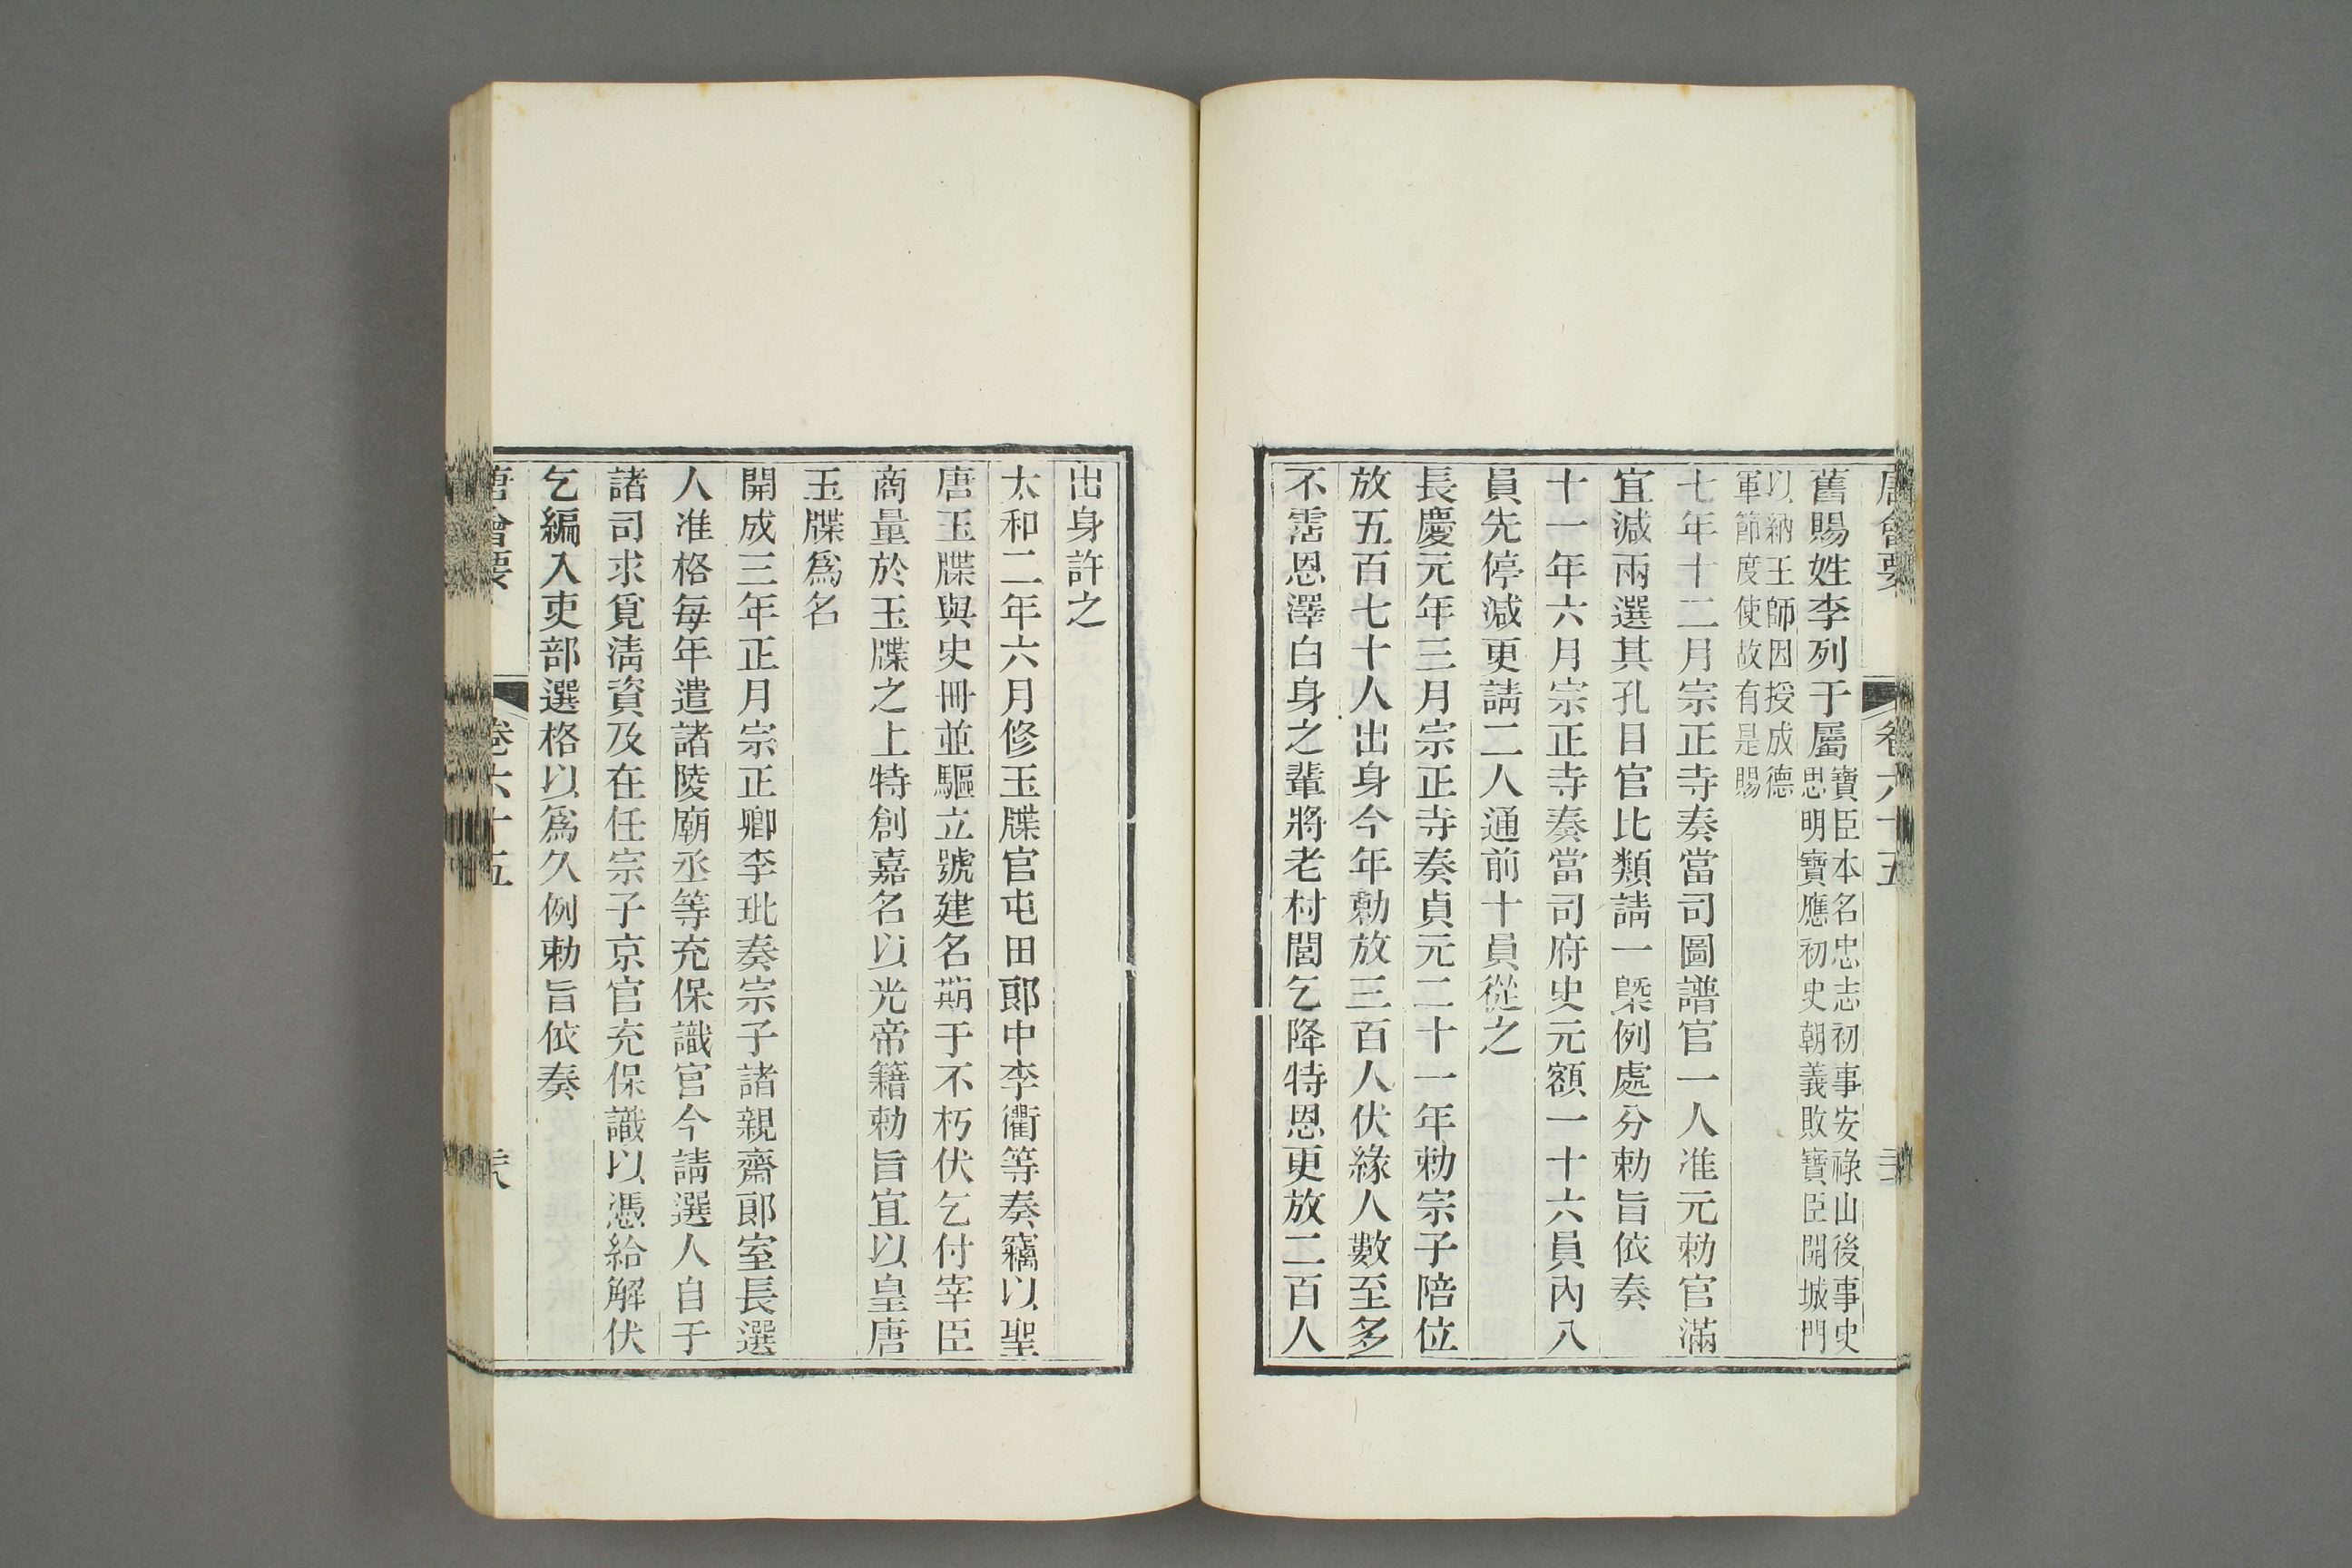 唐會要 卷六十五
舊賜姓李列于屬寶臣本名忠志初事安祿山後事史
思明寶應初史朝義敗寶臣開城門
以納王師因授成德
軍節度使故有是賜
七年十二月宗正寺奏當司圖譜官一人准元勅官滿
宜減兩選其孔目官比類請一槩例處分勅旨依奏
十一年六月宗正寺奏當司府史元額一十六員內八
員先停減更請二人通前十員從之
長慶元年三月宗正寺奏貞元二十一年勅宗子陪位
放五百七十人出身今年勅放三百人伏緣人數至多
不霑恩澤白身之輩將老村閭乞降特恩更放二百人
出身許之
太和二年六月修玉牒官屯田郎中李衢等奏竊以聖
唐玉牒與史冊並驅立號建名期于不朽伏乞付宰臣
商量於玉牒之上特創嘉名以光帝籍勅旨宜以皇唐
玉牒爲名
開成三年正月宗正卿李玭奏宗子諸親齋郎室長選
人准格每年遣諸陵廟丞等充保識官今請選人自于
諸司求覓清資及在任宗子京官充保識以憑給解伏
乞編入吏部選格以爲久例勅旨依奏
唐會要 卷六十五